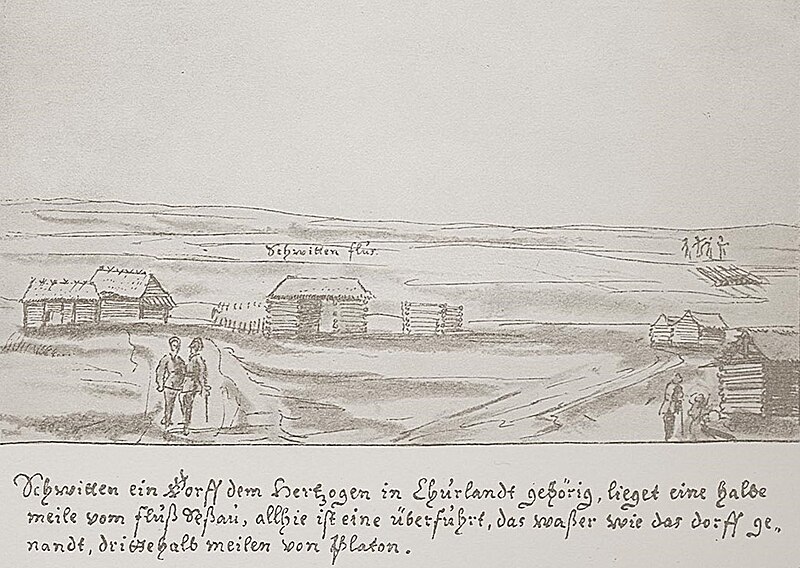 Schwitten flus.
Schwitten ein Dorff dem Hertzogen in Churlandt gehörig, lieget eine halbe
meile vom fluß Seßau, allhie ist eine überfuhrt, das waßer wie das dorff ge„
nandt, drittehalb meilen von Platon.